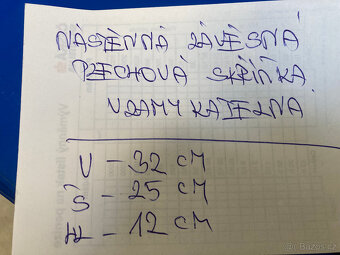 NÁSTĚNNÁ ZÁVĚSNÁ
PLECHOVÁ SKŘÍŇKA
UZAMYKATELNÁ
V - 32 CM
Š - 25 CM
HL - 12 CM